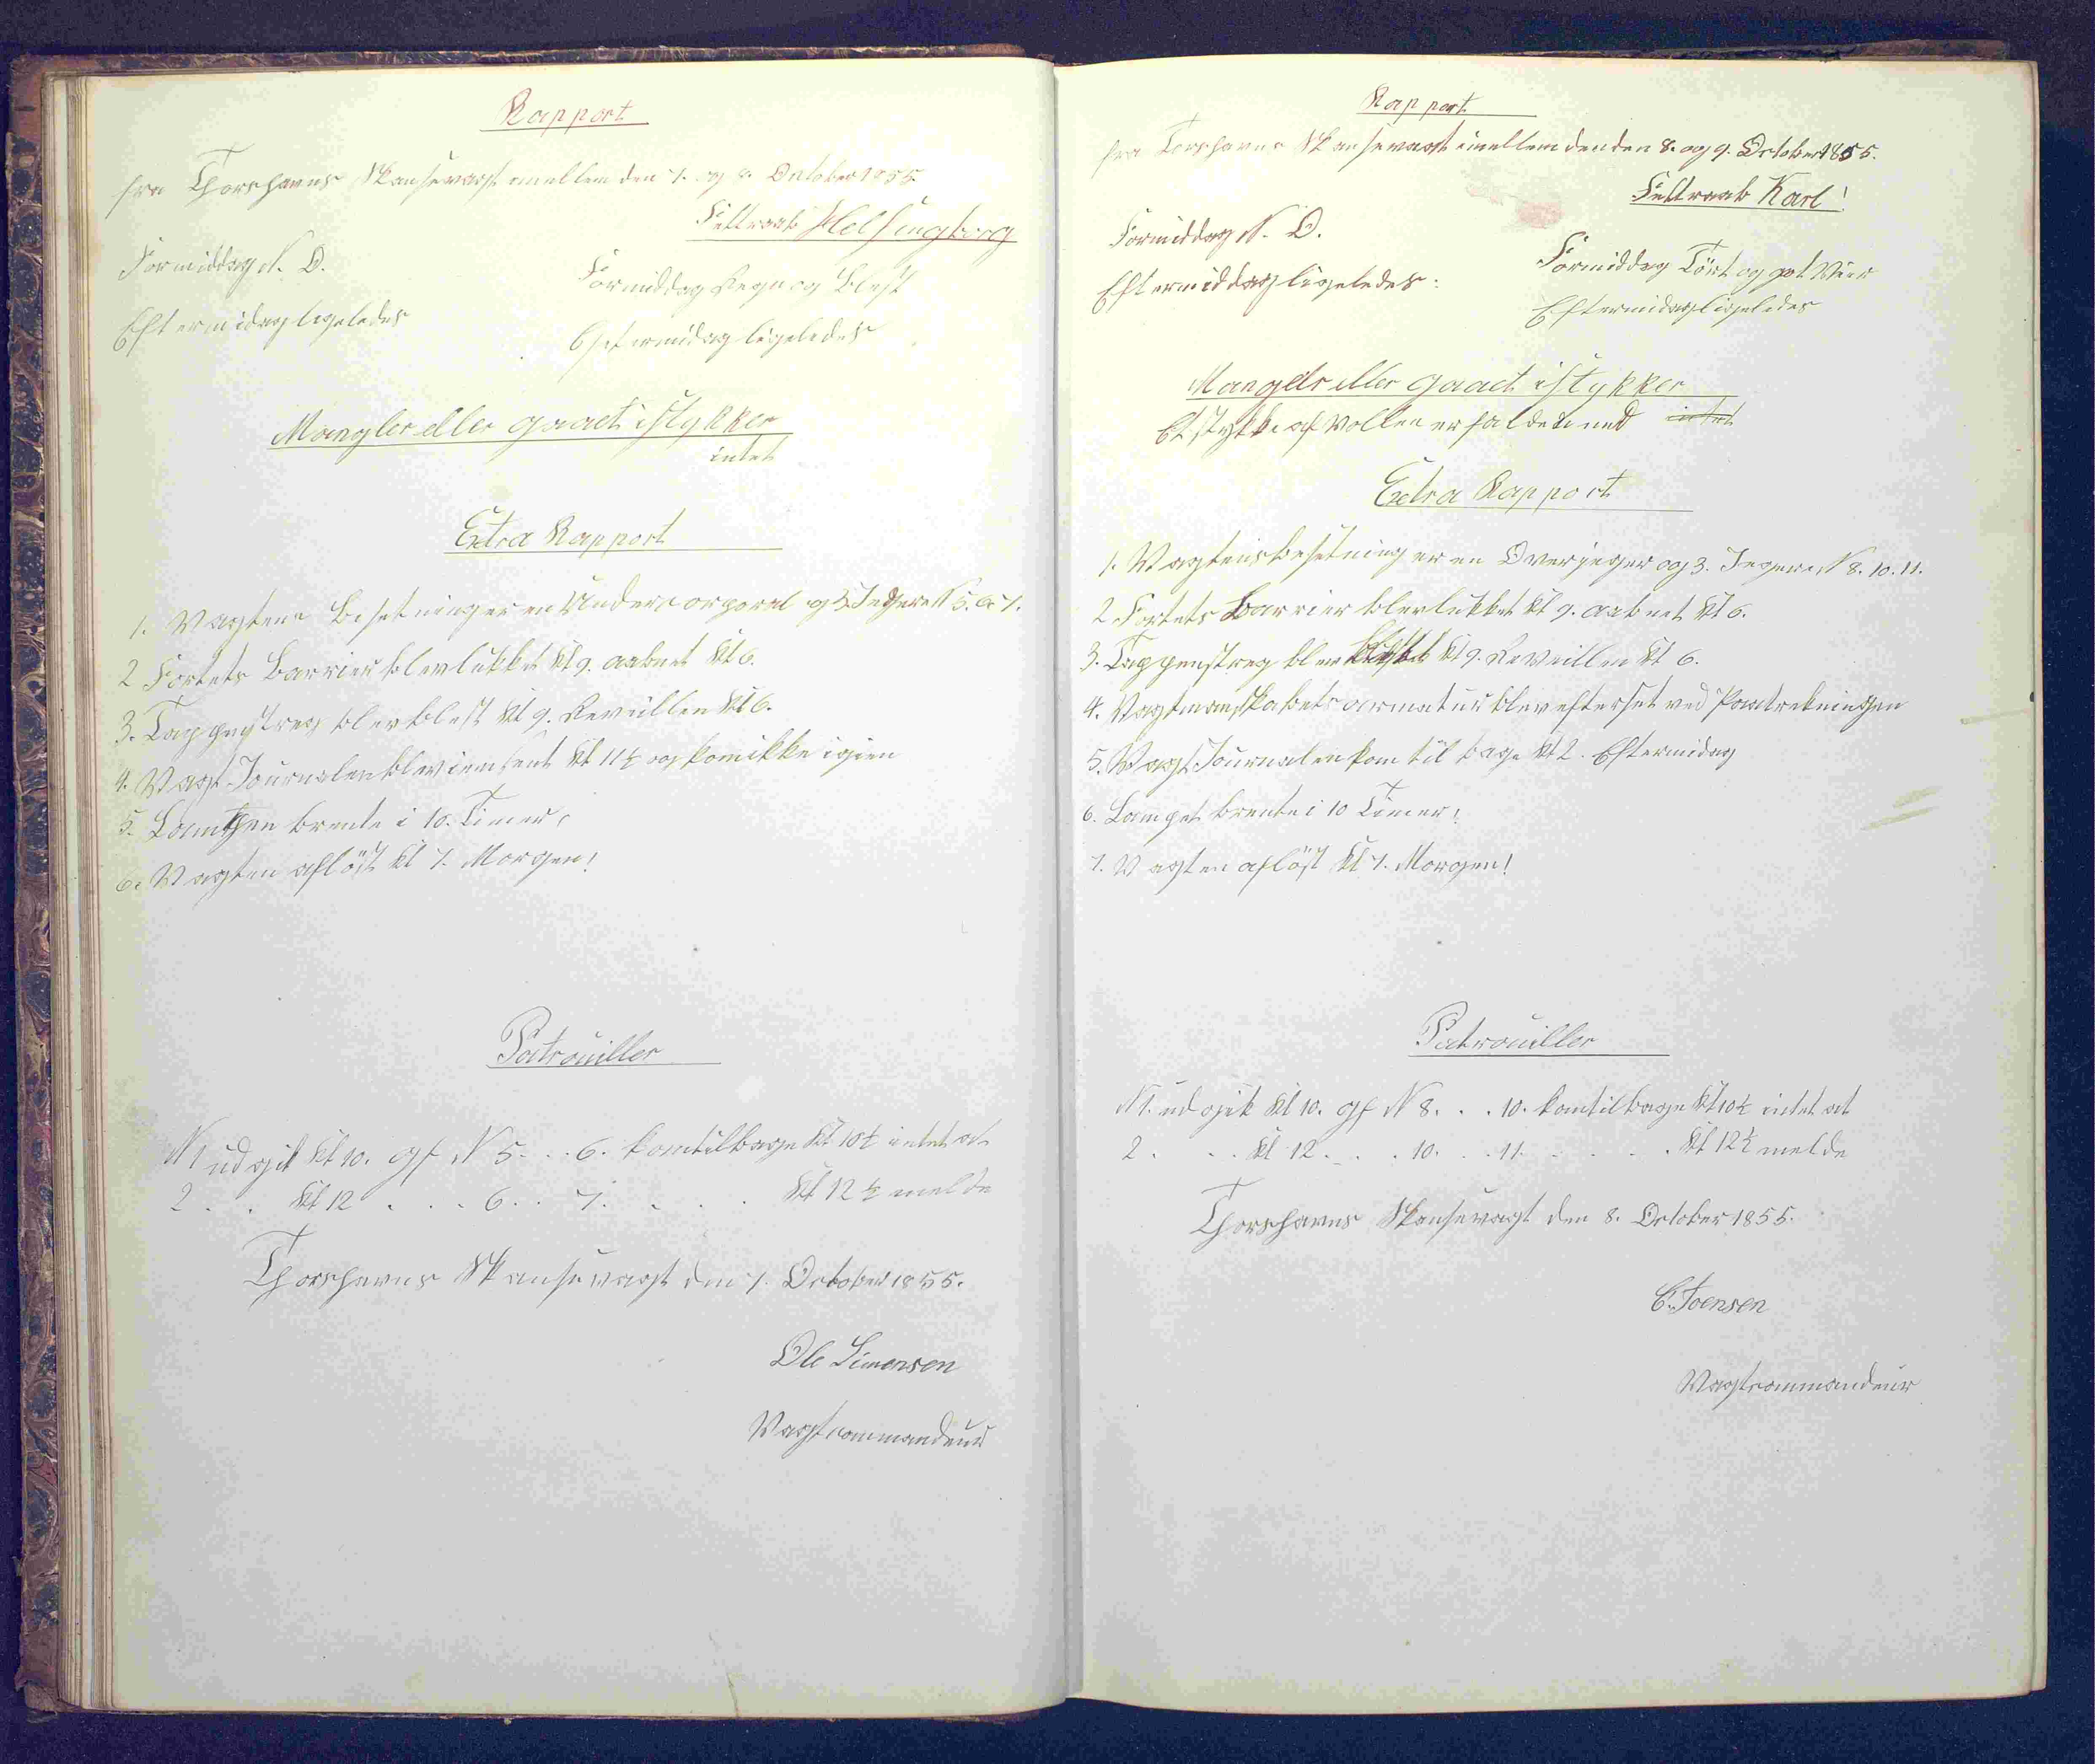 Rapport
fra Thorshavns Skansevagt emellem den 7. og 8. October 1855
Feltraab Helsingborg
Formiddag N. O.
Formiddag Regn og Blest
Eftermidag ligeledes
Eftermidag ligeledes
Mangler eller gaaet istykker
intet
Extra Rapport
1. Vagtens Besetning er en Undercorporal og 3. Jegere N 5. 6. 7.
2 Fortets Barrier blev lukket Kl 9. aabnet Kl 6.
3. Tappenstreg blev blest Kl 9. Reveillen Kl 6.
4. Vagt-Journalen blev iemsent Kl 11½ og kom ikke igien
5. Lampen brente i 10. Timer,
6. Vagten afløst Kl 7. Morgen!
Patrouiller
N 1 udgik Kl 10. gf N 5 . . . 6. kom tilbage Kl 10½ intet at
2 . . Kl 12 . . . 6 . . 7. . . . Kl 12½ melde
Thorshavns Skansevagt den 7. October 1855.
Ole Simensen
Vagtcommandeur
Rapport
fra Torshavns Skansevagt imellem den den 8. og 9. October 1855.
Feltraab Karl!
Formiddag N. O.
Formiddag Tört og got Veir
Eftermiddag ligeledes.
Eftermidag ligeledes
Mangelr eller gaaet istykker
Et stykke af Vollen er falden ned intet
Extra Rapport
1. Vagtens besetning er en Overjeger og 3. Jegere N 8. 10. 11.
2 Fortets Barrier blev lukket Kl 9. aabnet Kl 6.
3. Tappenstreg blev blest Kl 9. Reveillen Kl 6.
4. Vagtmanskabets armatur blev efterset ved Paatrekningen
5. Vagt Journalen kom til bage Kl 2. Eftermidag
6. Lampet brente i 10 Timer!
7. Vagten afløst Kl 7. Morgen!
Patrouiller
N 1. udgik Kl 10. gf N 8. . . 10. kom tilbage Kl 10½ intet at
2 . . . Kl 12 . . . 10. . . 11. . . . . Kl 12½ melde
Thorshavns Skansevagt den 8. October 1855.
C. Joensen
Vagtcommandeur